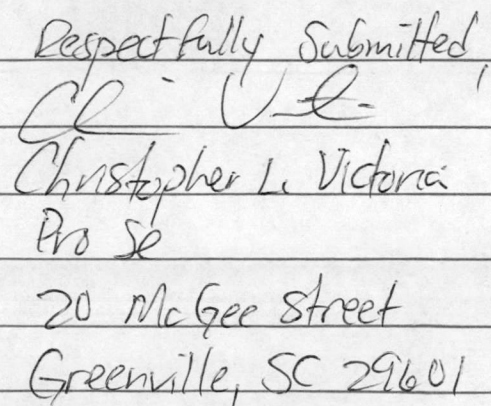 Respectfully Submitted,
Christopher L. Victoria
Pro Se
20 McGee Street
Greenville, SC 29601